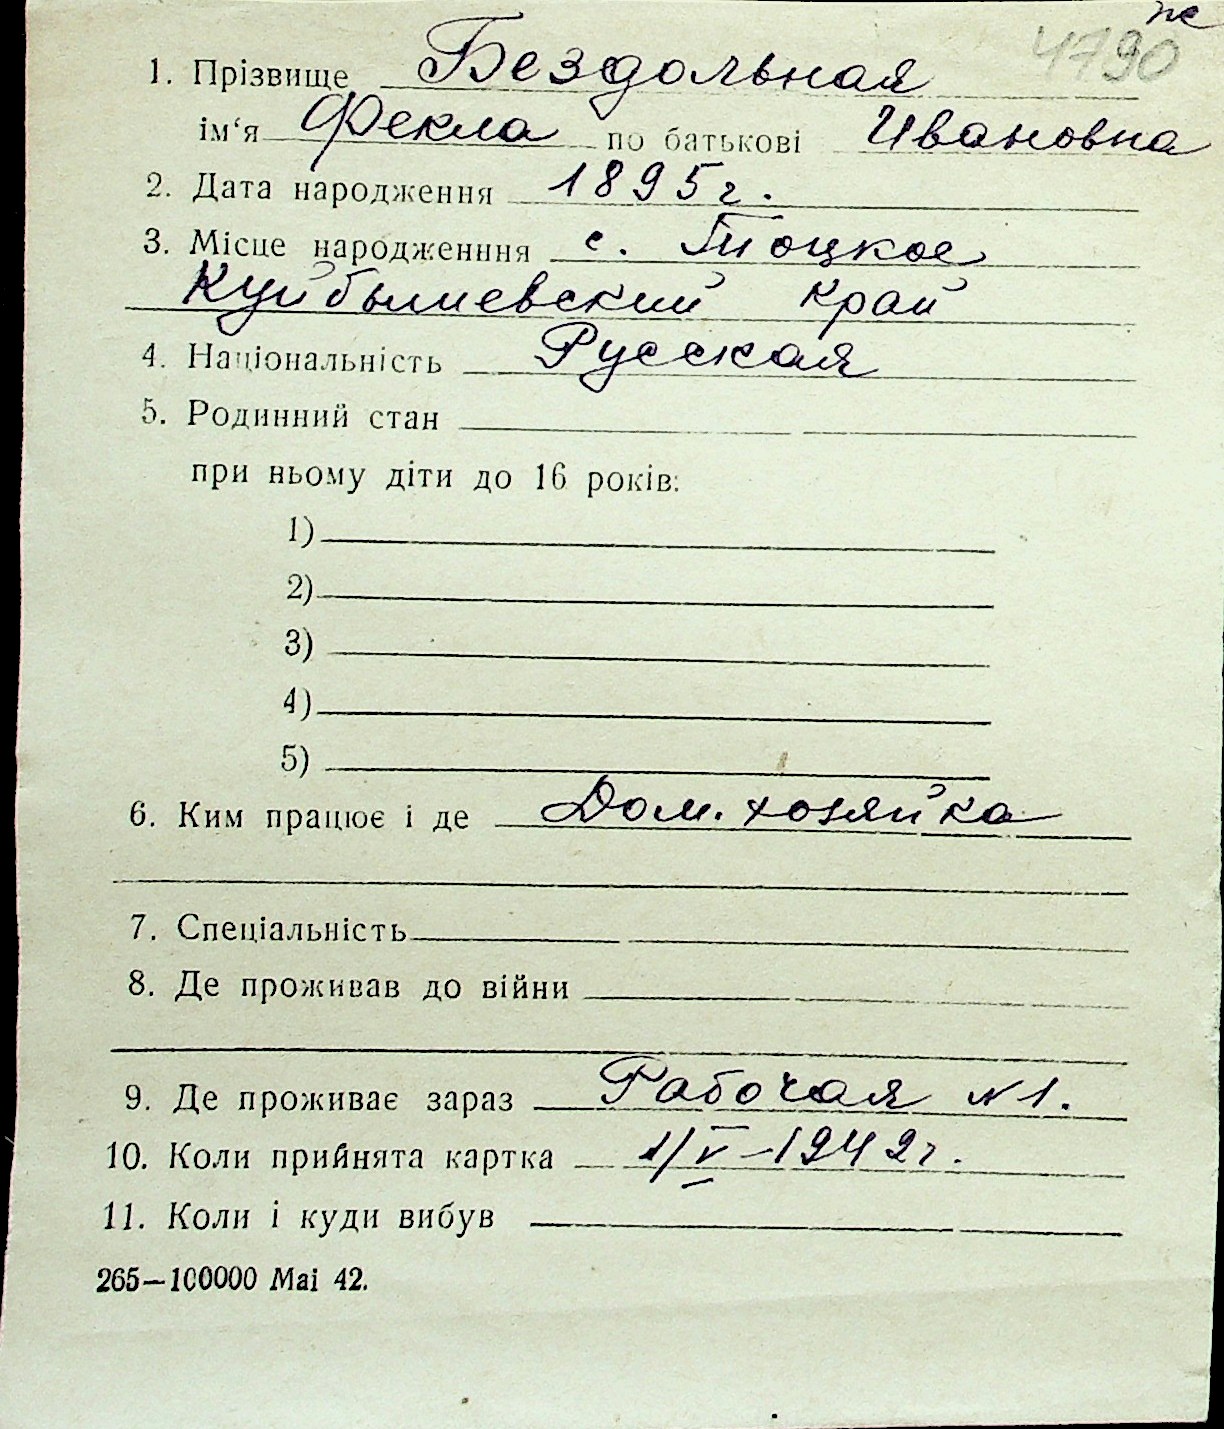 же
4790
1. Прізвище Бездольная
ім‘я Фекла по батькові Ивановна
2. Дата народження 1895 г.
3. Місце народженння с. Тоцкое
Куйбышевский край
4. Національність Русская
5. Родинний стан
при ньому діти до 16 років:
1)
2)
3)
4)
5)
6. Ким працює і де Дом. хозяйка
7. Спеціальність
8. Де проживав до війни
9. Де проживає зараз Рабочая №1.
10. Коли прийнята картка 1/V-1942 г.
11. Коли і куди вибув
265—100000 Mai 42.